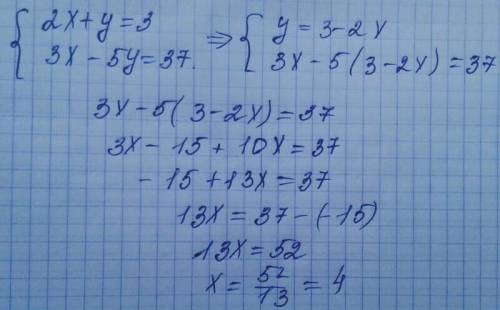 { 2x + y = 3 ⇒ { y = 3 - 2x
3x - 5y = 37. 3x - 5(3 - 2x) = 37
3x - 5(3 - 2x) = 37
3x - 15 + 10x = 37
- 15 + 13x = 37
13x = 37 - (-15)
13x = 52
x = 52/13 = 4